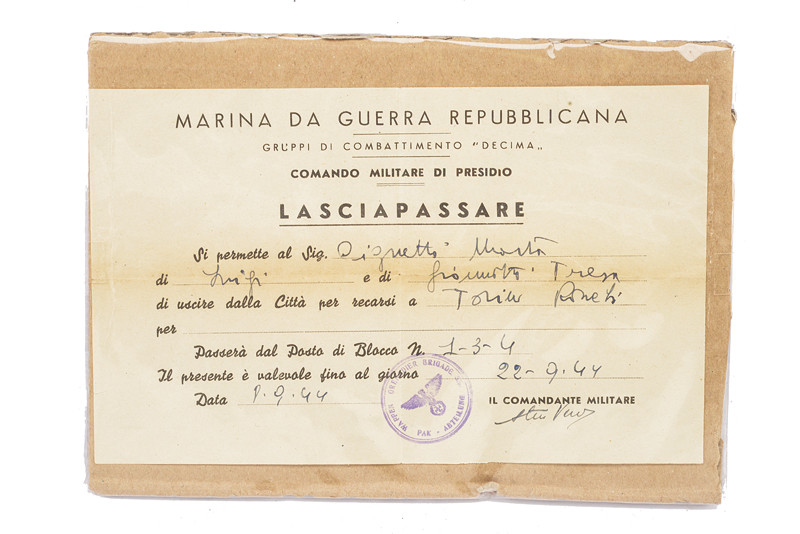 MARINA DA GUERRA REPUBBLICANA
GRUPPI DI COMBATTIMENTO "DECIMA„
COMANDO MILITARE DI PRESIDIO
LASCIAPASSARE
Si permette al Sig.
di Luigi e di Teresa
di uscire dalla Città per recarsi a Torino
per
Passerà dal Posto di Blocco N. 1-3-4
Il presente è valevole fino al giorno 22-9-44
Data 8.9.44
IL COMANDANTE MILITARE
WAFFEN GRENADIER BRIGADE
PAK - ABTEILUNG